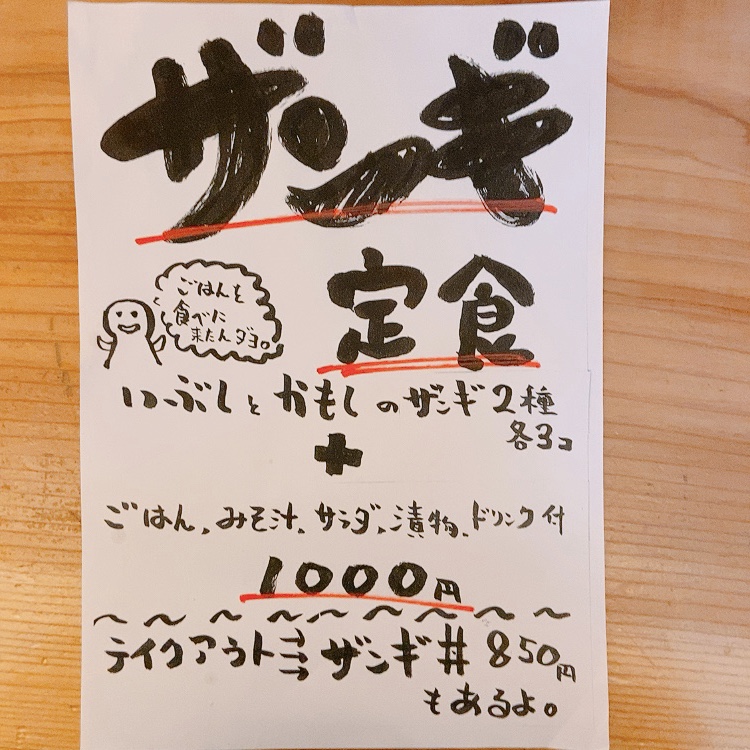 ザンギ
定食
ごはんを
食べに
来たんダヨ。
いぶしと かもしのザンギ 2種
各3コ
+
ごはん、みそ汁、サラダ、漬物、ドリンク付
1000円
〜〜〜〜〜〜〜〜〜
テイクアウト→→→ザンギ丼 850円
もあるよ。